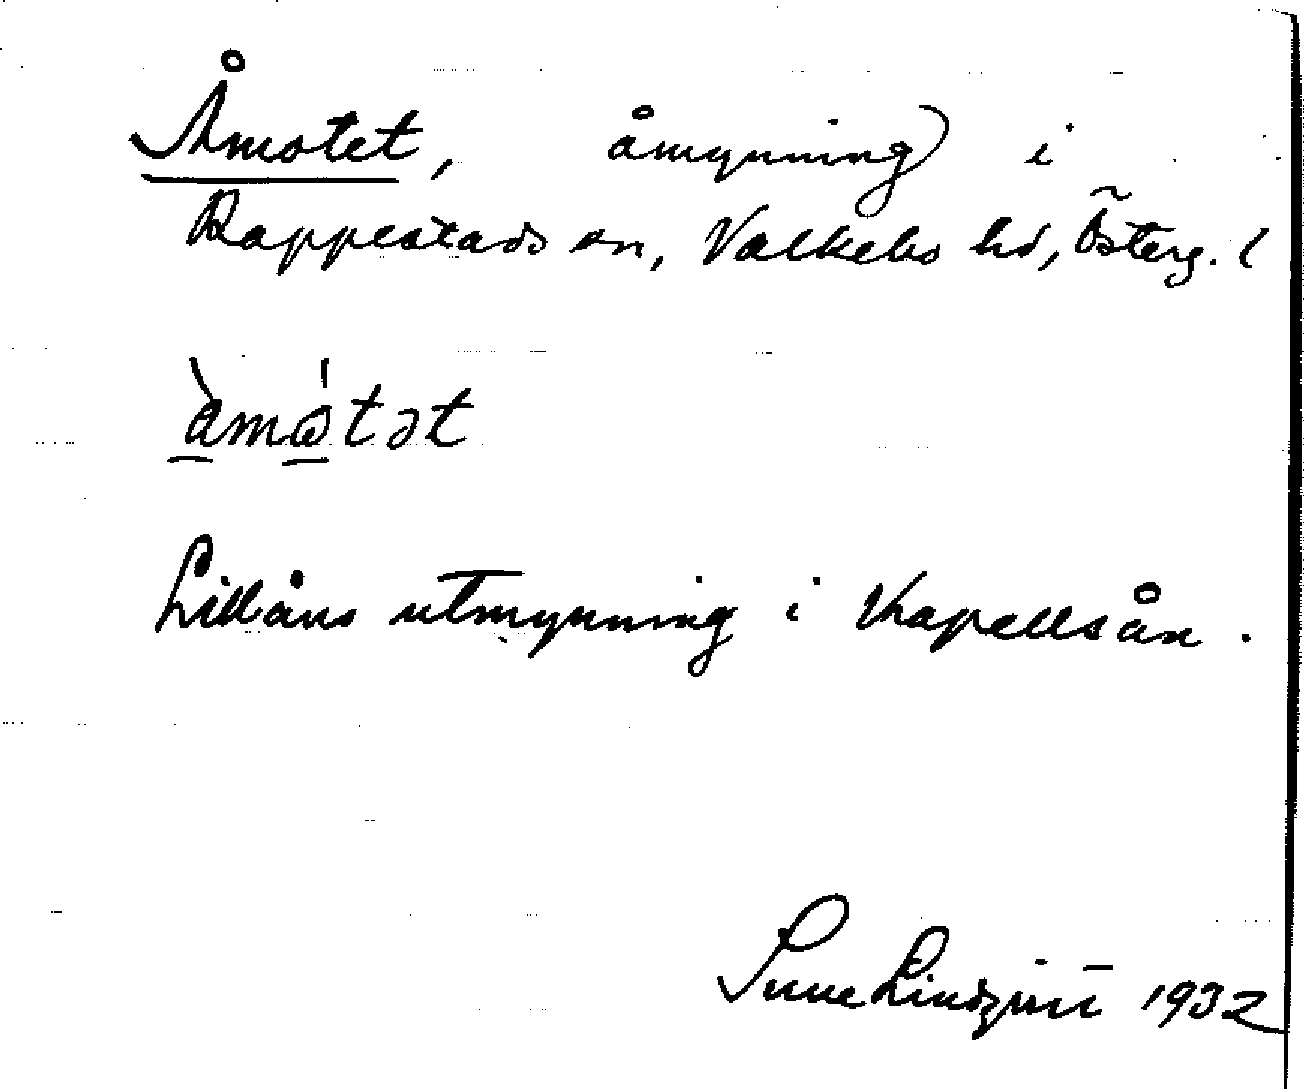 Åmotet, åmynning i
Rappestads sn, Valkebo hd, Österg. l
åmo̱tət
Lillåns utmynning i Kapellsån.
Sune Lindqvist 1932